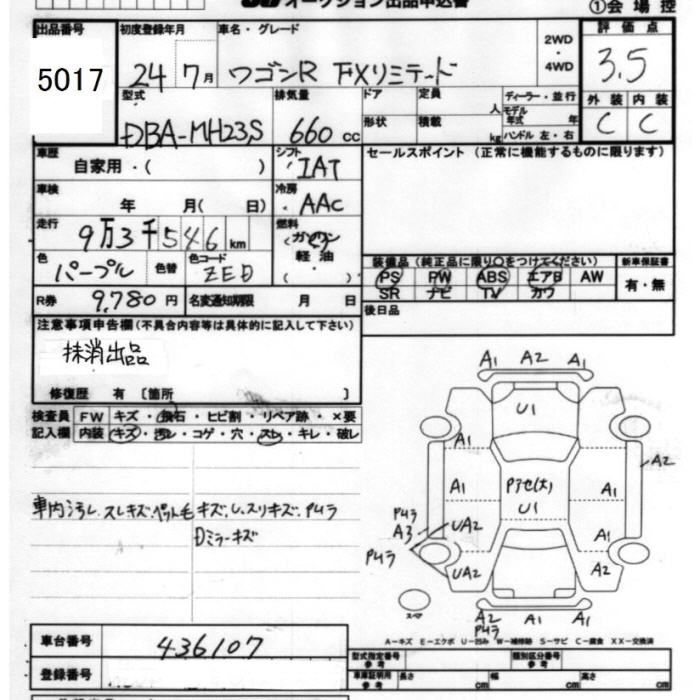 オークション出品申込書
①会場控
出品番号 初度登録年月 車名・グレード 2WD ・ 4WD 評価点
5017 24 7月 ワゴンR FXリミテード 3.5
型式 排気量 ドア 定員 人 ディーラー・並行 外装 内装
DBA-MH23S 660 cc 形状 積載 kg モデル年式 年 ハンドル 左・右 C C
車歴 自家用・( ) シフト IAT セールスポイント (正常に機能するものに限ります)
車検 年 月( 日) 冷房 AAC
走行 9万3千546 km 燃料 ガソリン 軽油 ( )
色 パープル 色替 色コード ZED
装備品 (純正品に限り○をつけてください) 新車保証書
PS PW ABS エアB AW 有・無
SR ナビ TV カワ
R券 9,780円 名変通知期限 月 日 後日品
注意事項申告欄 (不具合内容等は具体的に記入して下さい)
抹消出品
修復歴 有 〔箇所 〕
検査員 FW キズ・飛石・ヒビ割・リペア跡・×要
記入欄 内装 キズ・汚レ・コゲ・穴・スレ・キレ・破レ
車内汚レ、スレキズ、ペット毛 キズ、U、スリキズ、Pムラ
Dミラーキズ
A1 A2 A1
U1
A1
A2
A1 Pアセ(大) A1
U1
Pムラ
A3 UA2 A1
Pムラ
UA2 A2
スペア
A2 A1 A1
Pムラ
A－キズ E－エクボ U－凹み W－補修跡 S－サビ C－腐食 XX－交換済
車台番号 436107
型式指定番号 参考 類別区分番号 参考
登録番号
車庫証明用 参考 長さ cm 幅 cm 高さ cm